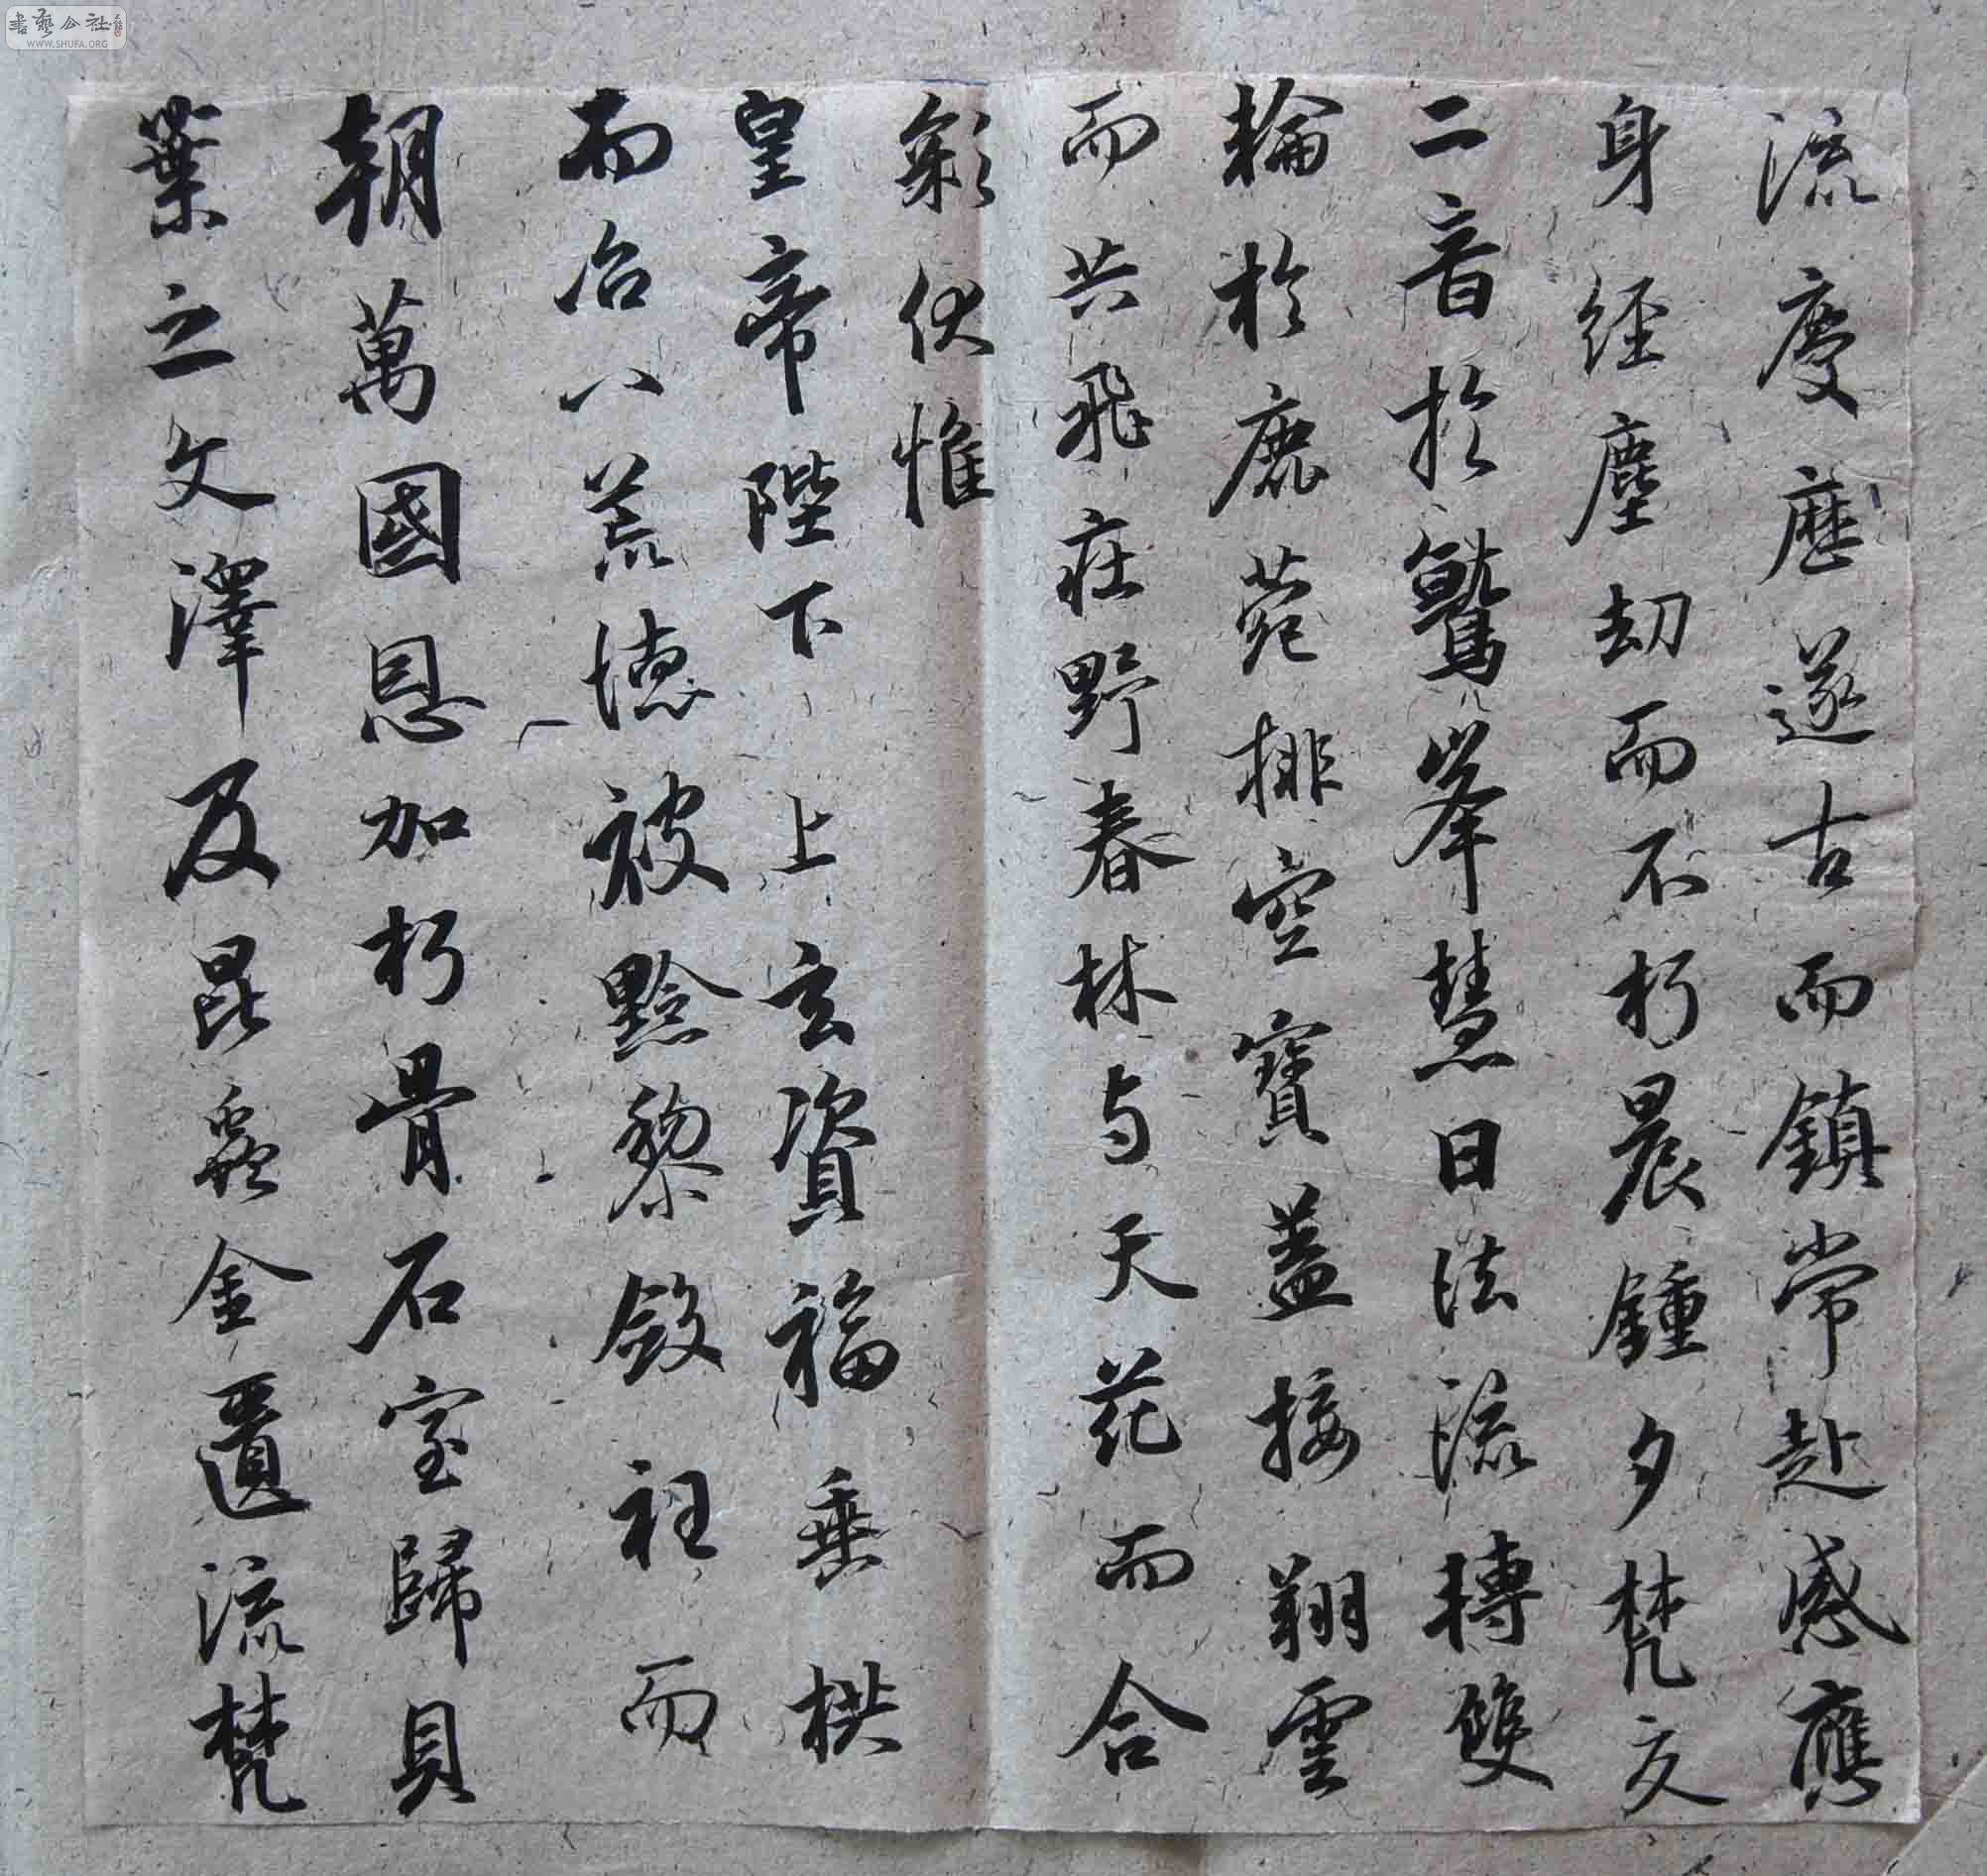 流慶歷遂古而鎮常赴感應
身經塵劫而不朽晨鍾夕梵交
二音於鷲峯慧日法流轉雙
輪於鹿菀排空寶蓋接翔雲
而共飛庄野春林与天花而合
彩伏惟
皇帝陛下上玄資福垂拱
而治八荒德被黔黎斂衽而
朝萬國恩加朽骨石室歸貝
葉之文澤及昆蟲金匱流梵
書藝公社
WWW.SHUFA.ORG